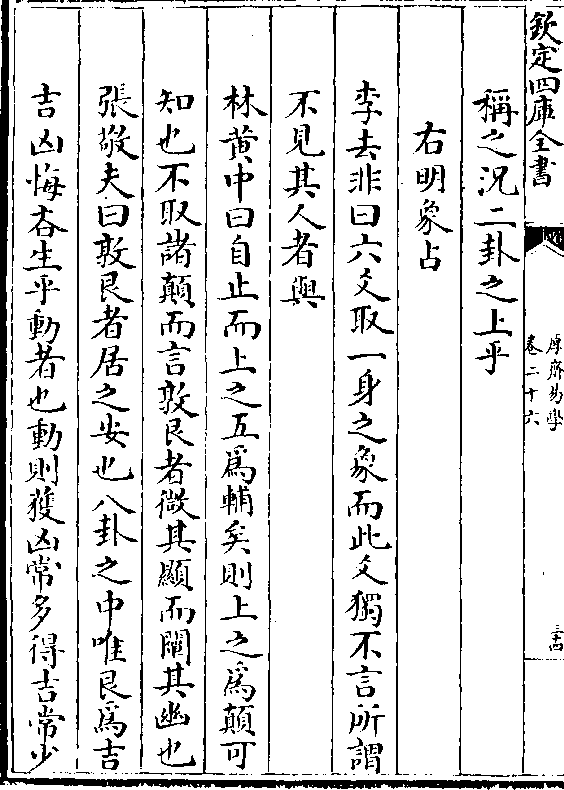 欽定四庫全書
厚齋易學
卷二十六
三十四
稱之況二卦之上乎
右明象占
李去非曰六爻取一身之象而此爻獨不言所謂
不見其人者與
林黄中曰自止而上之五為輔矣則上之為顛可
知也不取諸顛而言敦艮者微其顯而闡其幽也
張敬夫曰敦艮者居之安也八卦之中唯艮為吉
吉凶悔吝生乎動者也動則獲凶常多得吉常少